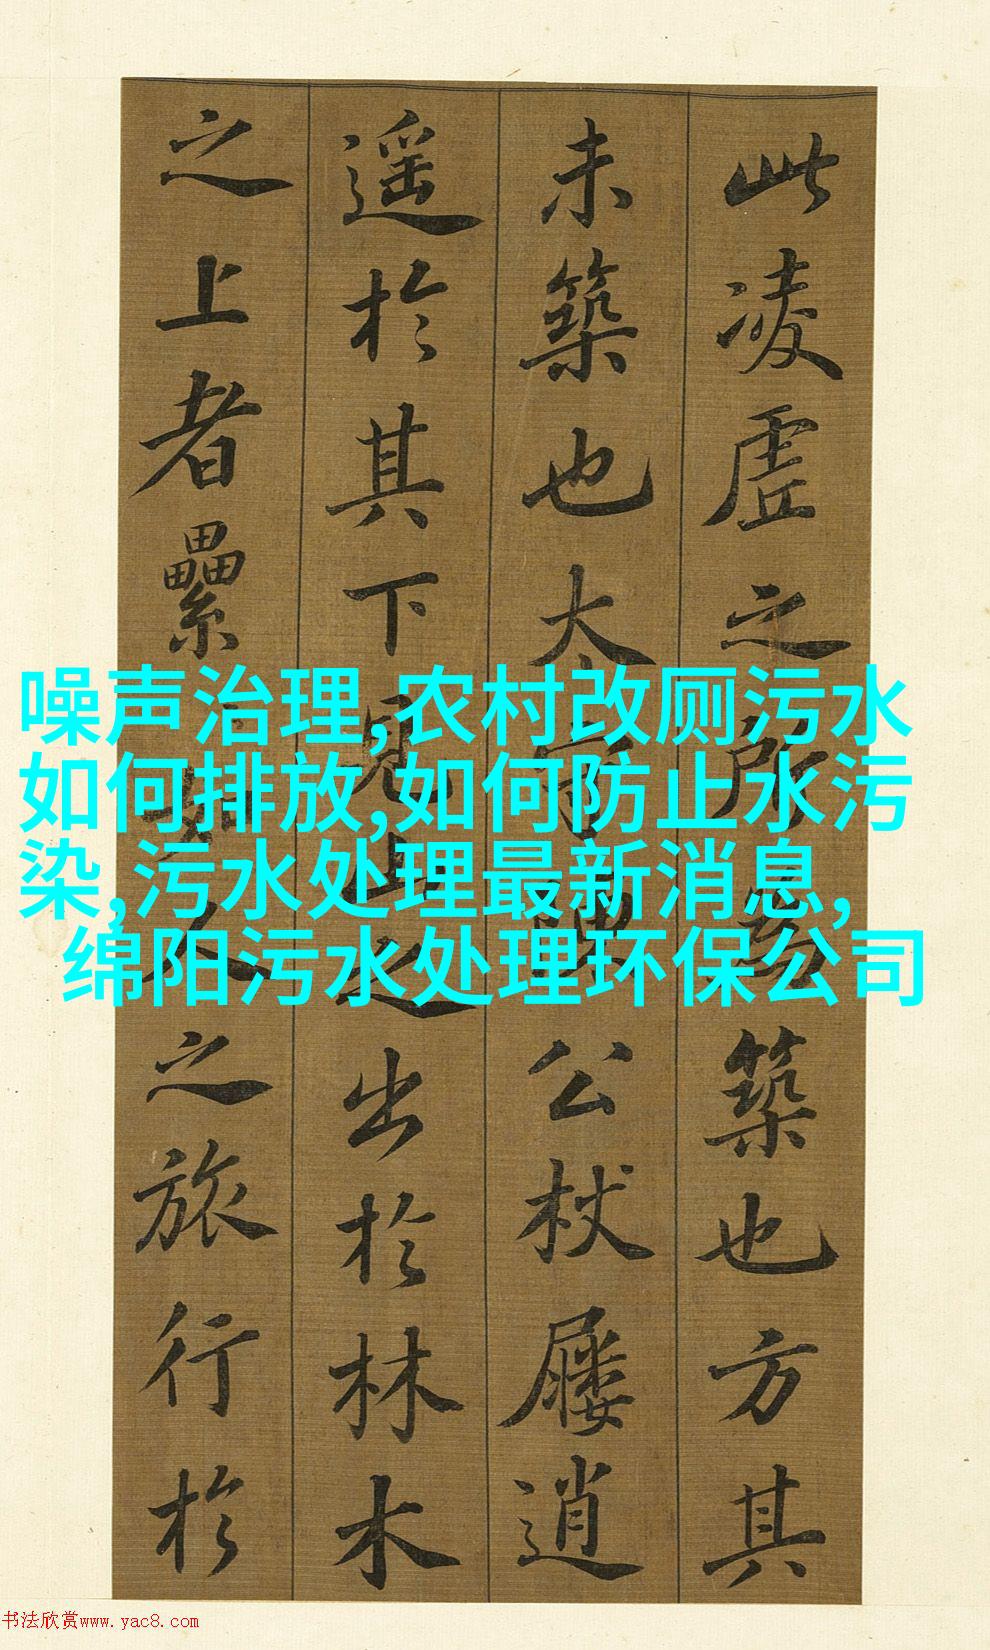 此凌虛之所為築也方其
未築也太守陳公杖屨逍
遥於其下見山之出於林木
之上者纍如人之旅行於
噪声治理,农村改厕污水
如何排放,如何防止水污
染,污水处理最新消息,
绵阳污水处理环保公司
书法欣赏www.yac8.com